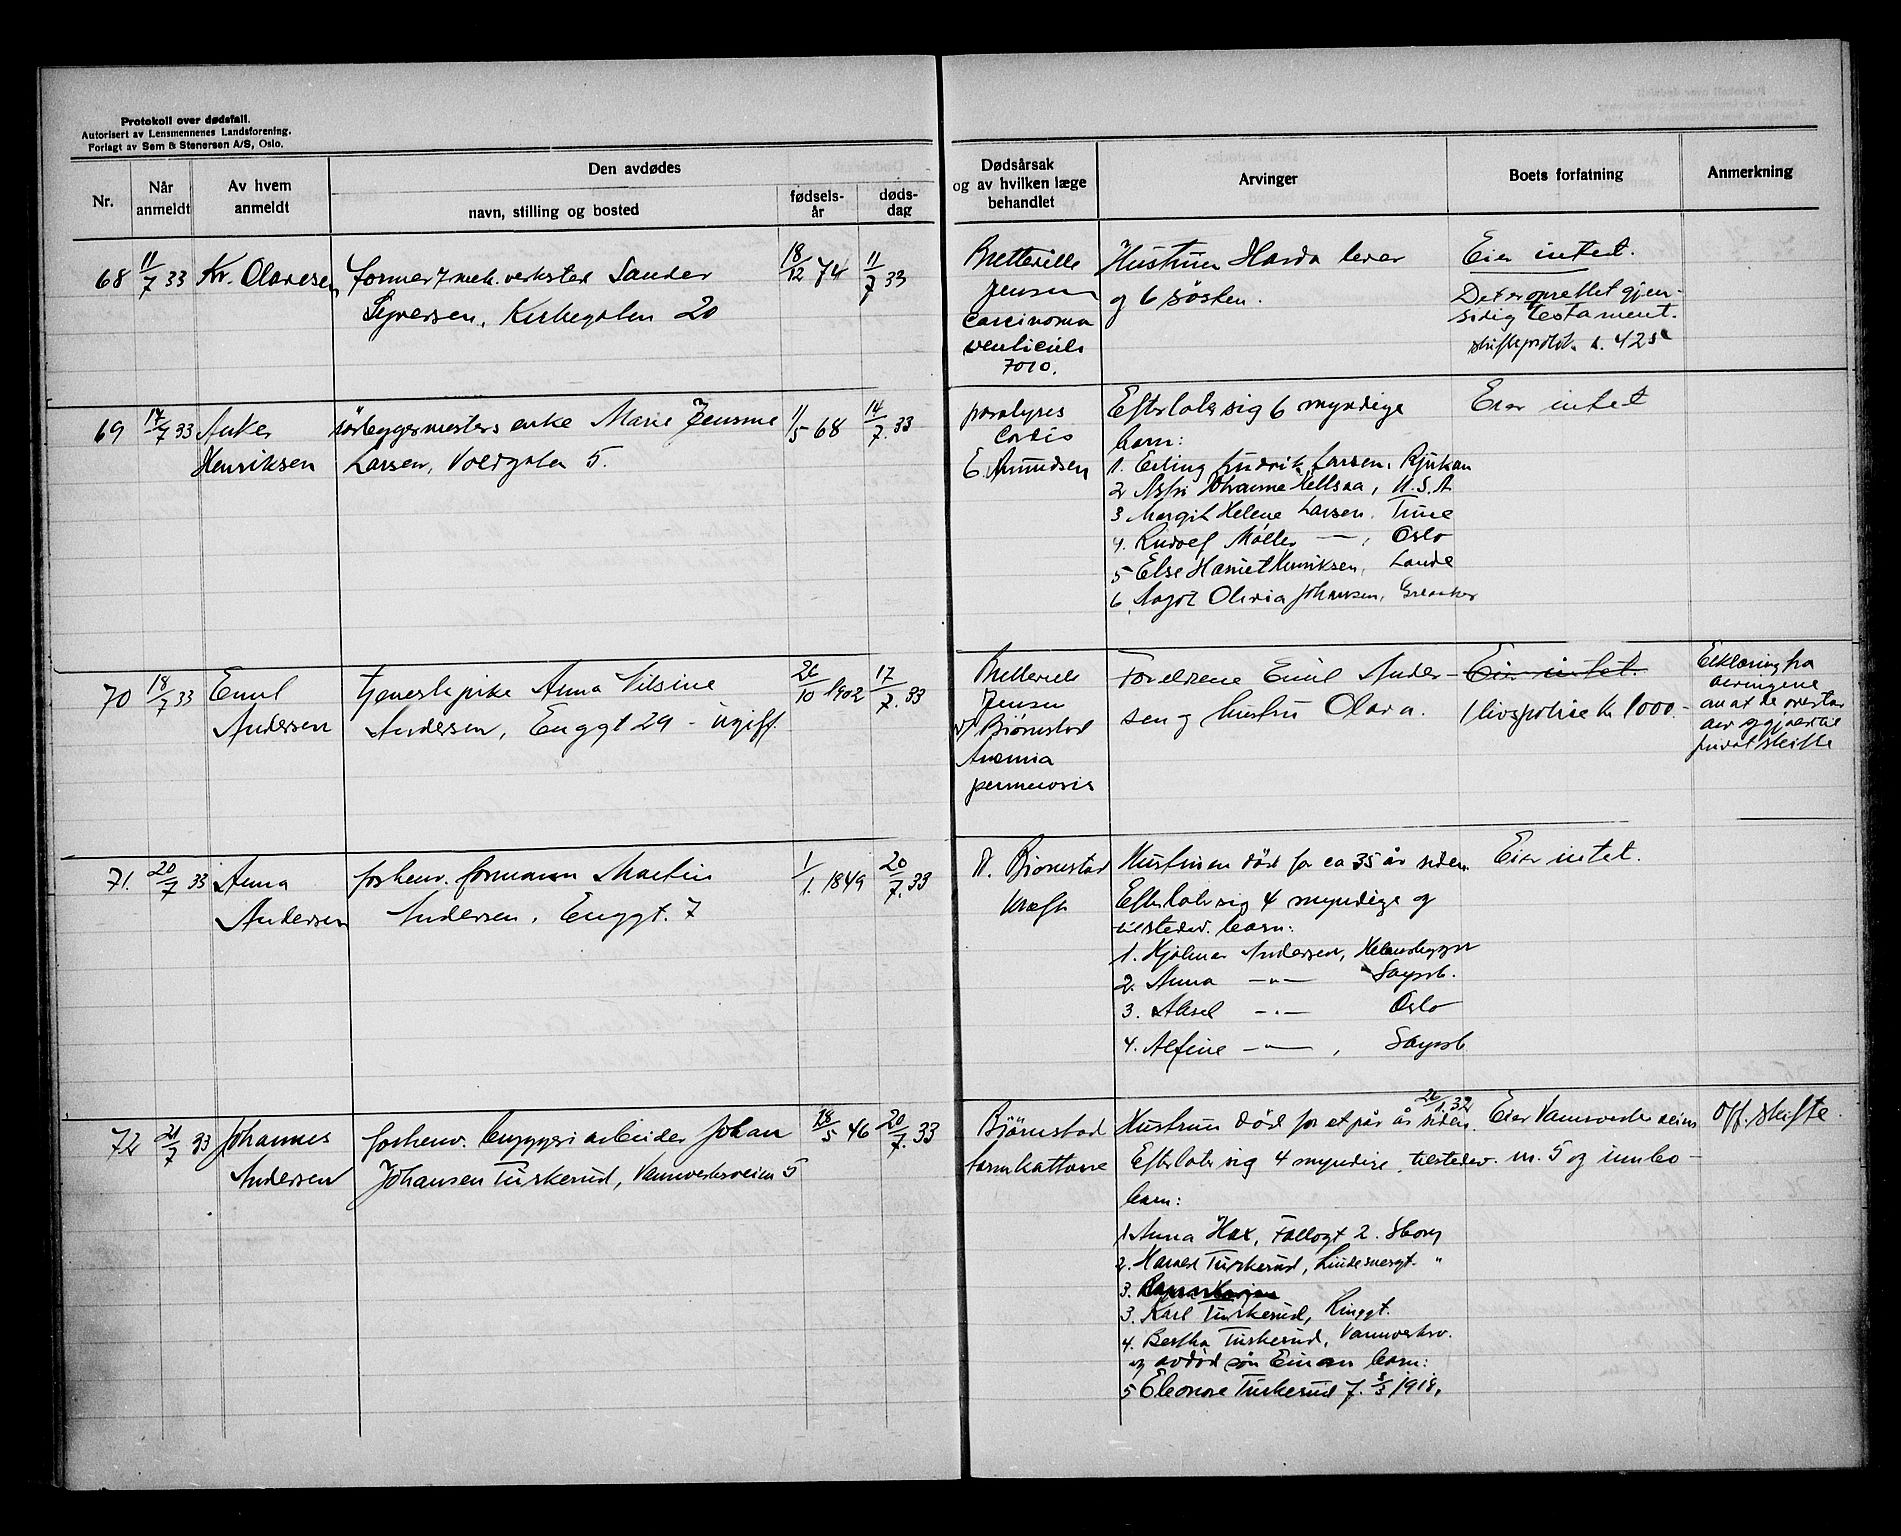 Protokoll over dødsfall.
Autorisert av Lensmennenes Landsforening.
Forlagt av Sem & Stenersen A/S, Oslo.
Nr.
Når anmeldt
Av hvem anmeldt
Den avdødes
navn, stilling og bosted
fødsels-år
døds-dag
Dødsårsak og av hvilken læge behandlet
Arvinger
Boets forfatning
Anmerkning
68 11/7 33 Kr. Olavesen
former mek. verksted Sander
Syversen, Kirkegaten 20
18/12 74 11/7 33
Bretteville
Jensen
Carcinoma
ventriculi
Hustruen lever
og 6 søsken.
Eier intet.
Det er oprettet gjen-
sidig testament.
skifteprotok. 425
69 14/7 33 Anker
Henriksen
enke Marie Jensine
Larsen, Voldgaten 5.
11/5 68 14/7. 33
paralysis
cordis
E. Amundsen
Efterlater sig 6 myndige
barn:
1. Erling Fredrik Larsen, Rjukan
2 Astri Johanne Hellsaa, U.S.A
3 Margit Helene Larsen. Tune
4. Rudolf Møller — , Oslo
5 Else Harriet Henriksen, Lande
6. Aagot Olivia Johansen, Greaaker
Eier intet
70 18/7 33 Emil
Andersen
tjenestepike Anna Nilsine
Andersen, Enggt 29 - ugift
26/10 1902 17/7. 33
Bretteville
Jensen
Bjørnstad
Anemia
perniciosa
Foreldrene Emil Ander-
sen og hustru Olava.
Eier intet.
1 livspolise kr 1000.-
Erklæring fra
arvingene
om at de overtar
arv og gjæld til
privat skifte
71. 20/7 33 Anna
Andersen
forhenv. formann Martin
Andersen, Enggt. 7
1/1. 1849 20/7. 33
A. Bjørnstad
kreft
Hustruen død for ca 35 år siden
Efterlater sig 4 myndige og
tilstedev. barn:
1. Hjalmar Andersen,
2. Anna —"— Sarpsb.
3. Aksel —"— Oslo
4. Alfine —"— , Sarpsb
Eier intet.
72 21/7 33 Johannes
Andersen
forhenv. bryggeriarbeider Johan
Johansen Turkerud, Vannverksveien 5
18/5 46 20/7. 33
Bjørnstad
tarmkattarr
26/1. 32
Hustrun død for et par år siden.
Efterlater sig 4 myndige, tilstedev.
barn:
1. Anna Hox, Follogt 2. Sborg
2. Harald Turkerud, Lindesnesgt. "
3.
3. Karl Turkerud, Ringgt.
4. Bertha Turkerud, Vannverksv.
og avdød søn Einar barn:
5 Eleonore Turkerud f. 8/3 1918.
Eier Vannverksveien
nr. 5 og innbo-
Off. skifte.